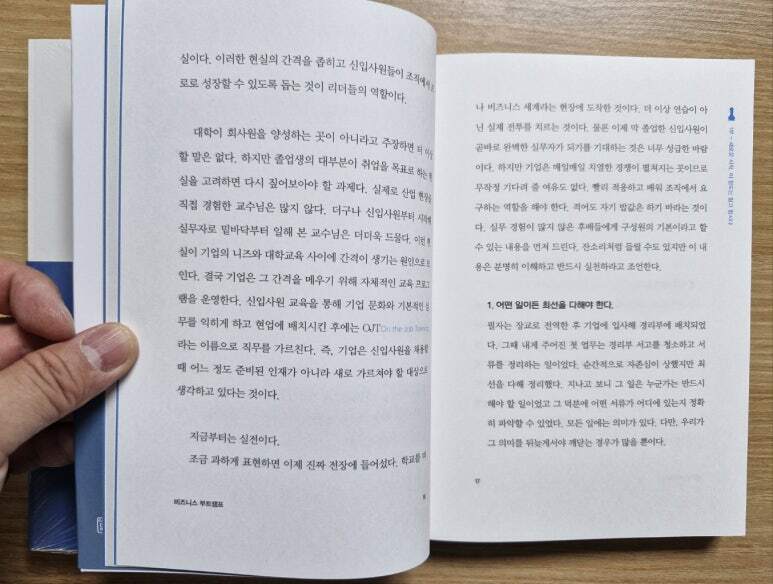 실이다. 이러한 현실의 간격을 좁히고 신입사원들이 조직에서
로로 성장할 수 있도록 돕는 것이 리더들의 역할이다.
대학이 회사원을 양성하는 곳이 아니라고 주장하면 더 이상
할 말은 없다. 하지만 졸업생의 대부분이 취업을 목표로 하는
실을 고려하면 다시 짚어보아야 할 과제다. 실제로 산업 현장을
직접 경험한 교수님은 많지 않다. 더구나 신입사원부터 시작해
실무자로 밑바닥부터 일해 본 교수님은 더더욱 드물다. 이런
실이 기업의 니즈와 대학교육 사이에 간격이 생기는 원인으로
인다. 결국 기업은 그 간격을 메우기 위해 자체적인 교육 프로그
램을 운영한다. 신입사원 교육을 통해 기업 문화와 기본적인
무를 익히게 하고 현업에 배치시킨 후에는 OJT On the Job Training
라는 이름으로 직무를 가르친다. 즉, 기업은 신입사원을 채용할
때 어느 정도 준비된 인재가 아니라 새로 가르쳐야 할 대상으로
생각하고 있다는 것이다.
지금부터는 실전이다.
조금 과하게 표현하면 이제 진짜 전장에 들어섰다. 학교를
비즈니스 부트캠프
나 비즈니스 세계라는 현장에 도착한 것이다. 더 이상 연습이 아
닌 실제 전투를 치르는 것이다. 물론 이제 막 졸업한 신입사원이
곧바로 완벽한 실무자가 되기를 기대하는 것은 너무 성급한 바람
이다. 하지만 기업은 매일매일 치열한 경쟁이 펼쳐지는 곳이므로
무작정 기다려 줄 여유도 없다. 빨리 적응하고 배워 조직에서 요
구하는 역할을 해야 한다. 적어도 자기 밥값은 하기 바라는 것이
다. 실무 경험이 많지 않은 후배들에게 구성원의 기본이라고 할
수 있는 내용을 먼저 드린다. 잔소리처럼 들릴 수도 있지만 이 내
용은 분명히 이해하고 반드시 실천하라고 조언한다.
1. 어떤 일이든 최선을 다해야 한다.
필자는 장교로 전역한 후 기업에 입사해 경리부에 배치되었
다. 그때 내게 주어진 첫 업무는 경리부 서고를 청소하고 서
류를 정리하는 일이었다. 순간적으로 자존심이 상했지만 최
선을 다해 정리했다. 지나고 보니 그 일은 누군가는 반드시
해야 할 일이었고 그 덕분에 어떤 서류가 어디에 있는지 정확
히 파악할 수 있었다. 모든 일에는 의미가 있다. 다만, 우리가
그 의미를 뒤늦게서야 깨닫는 경우가 많을 뿐이다.
17